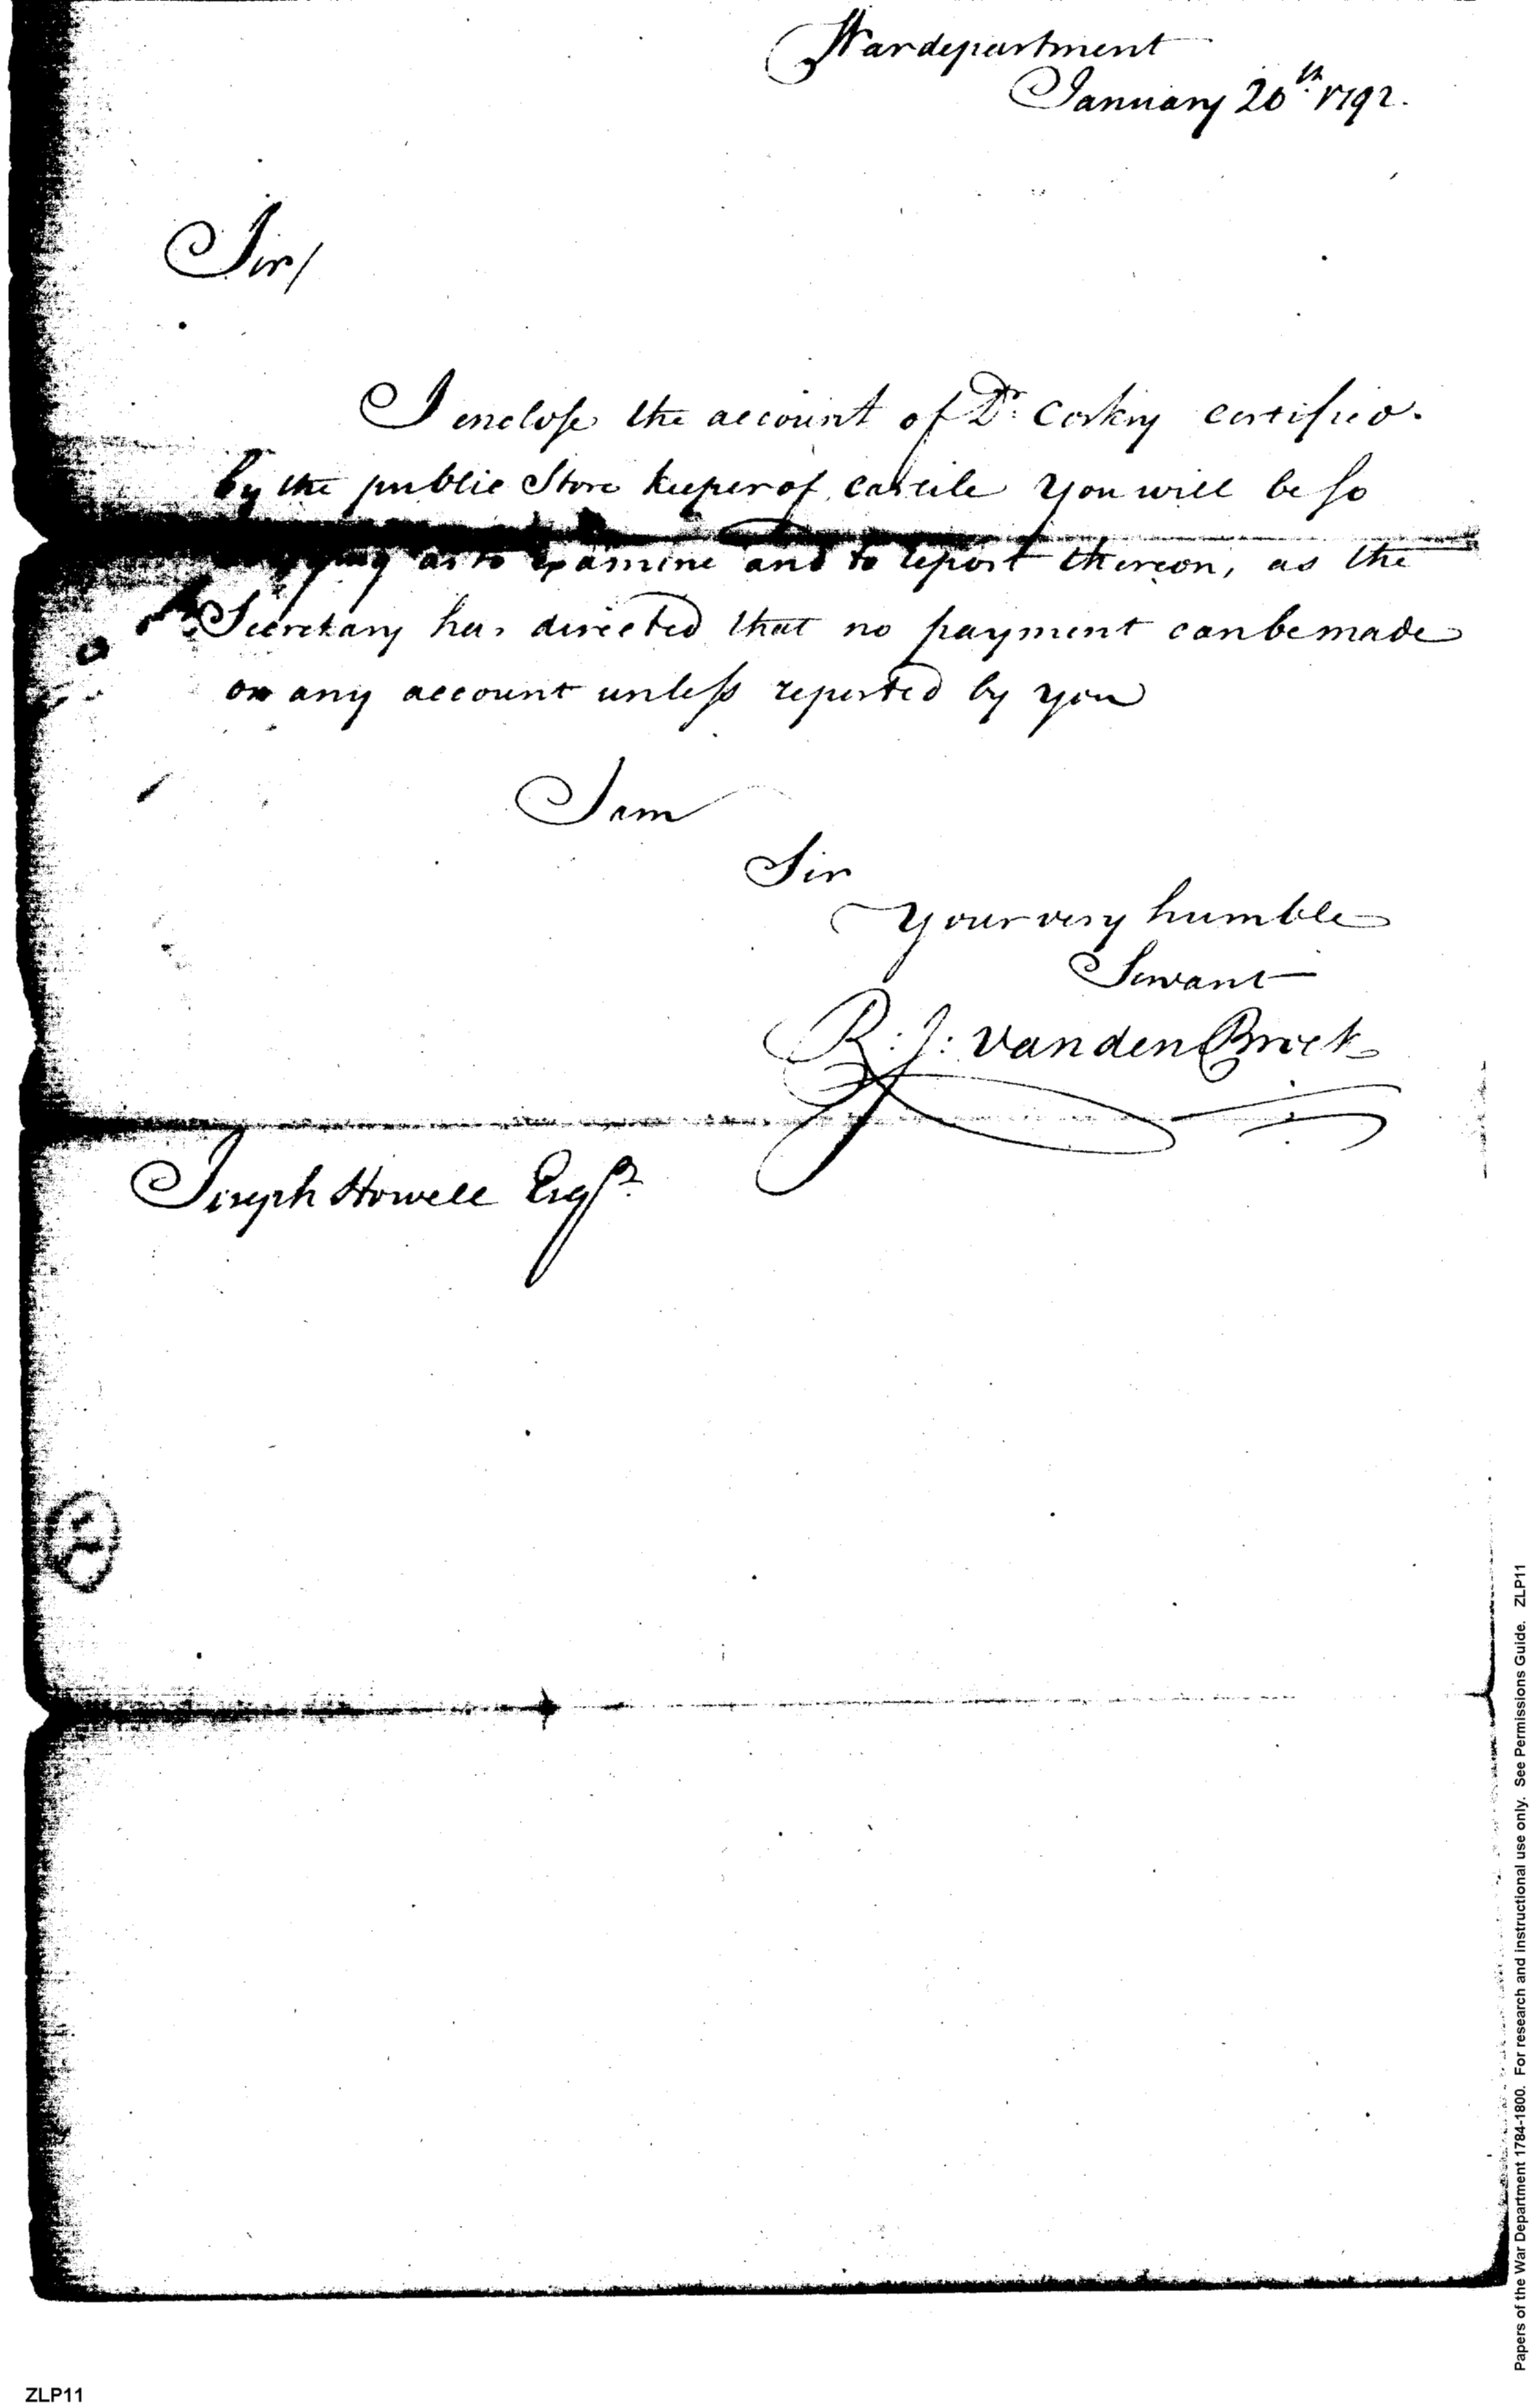 War department
January 20th 1792.
Sir/
I enclose the account of Dr. Corkry certified
by the public Store keeper of carlile you will be so
as to examine and to report thereon, as the
Secretary has directed that no payment can be made
on any account unless reported by you
I am
Sir
your very humble
Servant
R: J: Vanden Broek
Joseph Howell Esqr.
Papers of the War Department 1784-1800. For research and instructional use only. See Permissions Guide. ZLP11
ZLP11